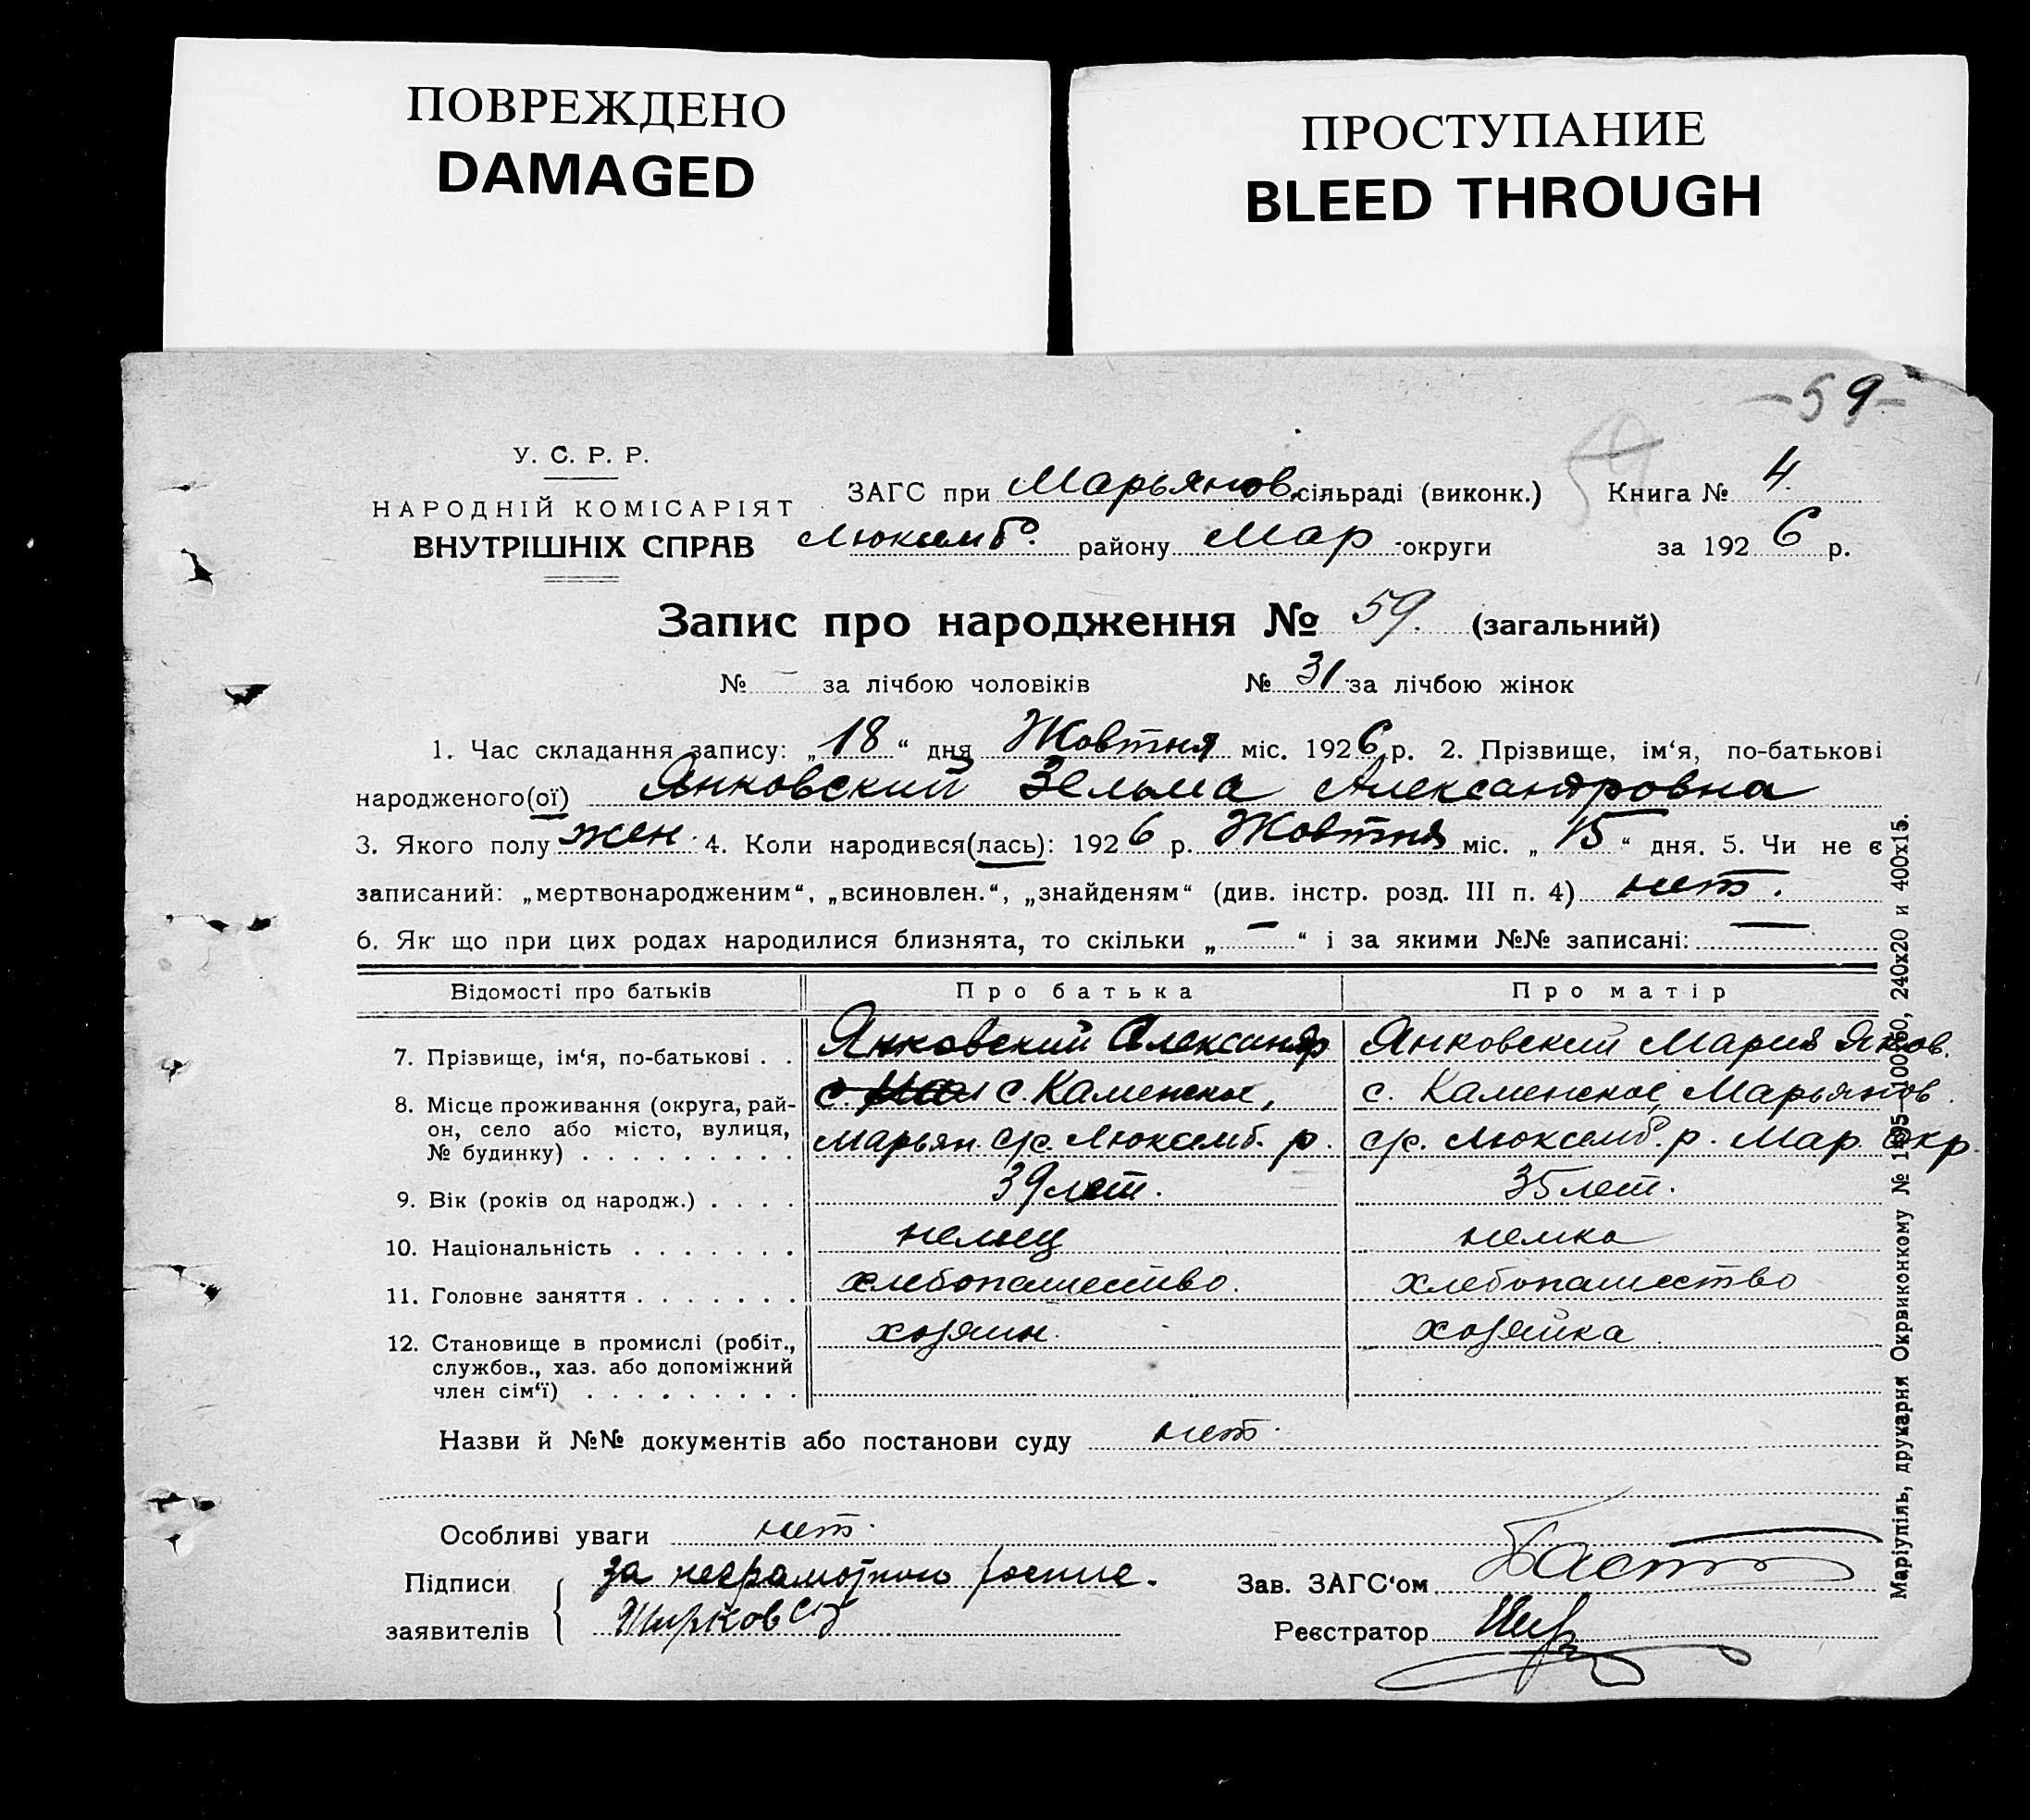 ПОВРЕЖДЕНО
DAMAGED
ПРОСТУПАНИЕ
BLEED THROUGH
-59-
59
У. С. Р. Р.
НАРОДНІЙ КОМІСАРІЯТ
ВНУТРІШНІХ СПРАВ
ЗАГС при Марьянов. сільраді (виконк.) Книга № 4.
Люксемб. району Мар округи за 1926 р.
Запис про народження № 59. (загальний)
№ — за лічбою чоловіків № 31 за лічбою жінок
1. Час складання запису: „18“ дня Жовтня міс. 1926 р. 2. Прізвище, ім‘я, по-батькові
народженого(ої) Янковский Зельма Александровна
3. Якого полу жен. 4. Коли народився(лась): 1926 р. Жовтня міс. „15“ дня. 5. Чи не є
записаний: „мертвонародженим“, „всиновлен.“, „знайденям“ (див. інстр. розд. III п. 4) нет.
6. Як що при цих родах народилися близнята, то скільки „—“ і за якими №№ записані: —
Відомості про батьків Про батька Про матір
7. Прізвище, ім‘я, по-батькові . . Янковский Александр Янковский Мария Яков.
8. Місце проживання (округа, рай- с. Каменское, с. Каменское, Марьянов.
он, село або місто, вулиця, Марьян. с/с. Люксемб. р. с/с. Люксемб. р. Мар. окр.
№ будинку) . . . . . . . . .
9. Вік (років од народж.) . . . . 39 лет. 35 лет.
10. Національність . . . . . . . немец немка
11. Головне заняття . . . . . . . хлебопашество. хлебопашество
12. Становище в промислі (робіт., хозяин. хозяйка
службов., хаз. або допоміжний
член сім‘ї) . . . . . . . . .
Назви й №№ документів або постанови суду нет.
Особливі уваги нет.
Підписи за неграмотного Зав. ЗАГС‘ом
заявителів Реєстратор
Маріупіль, друкарня Окрвиконкому № 1495—100х60, 240х20 и 400х15.